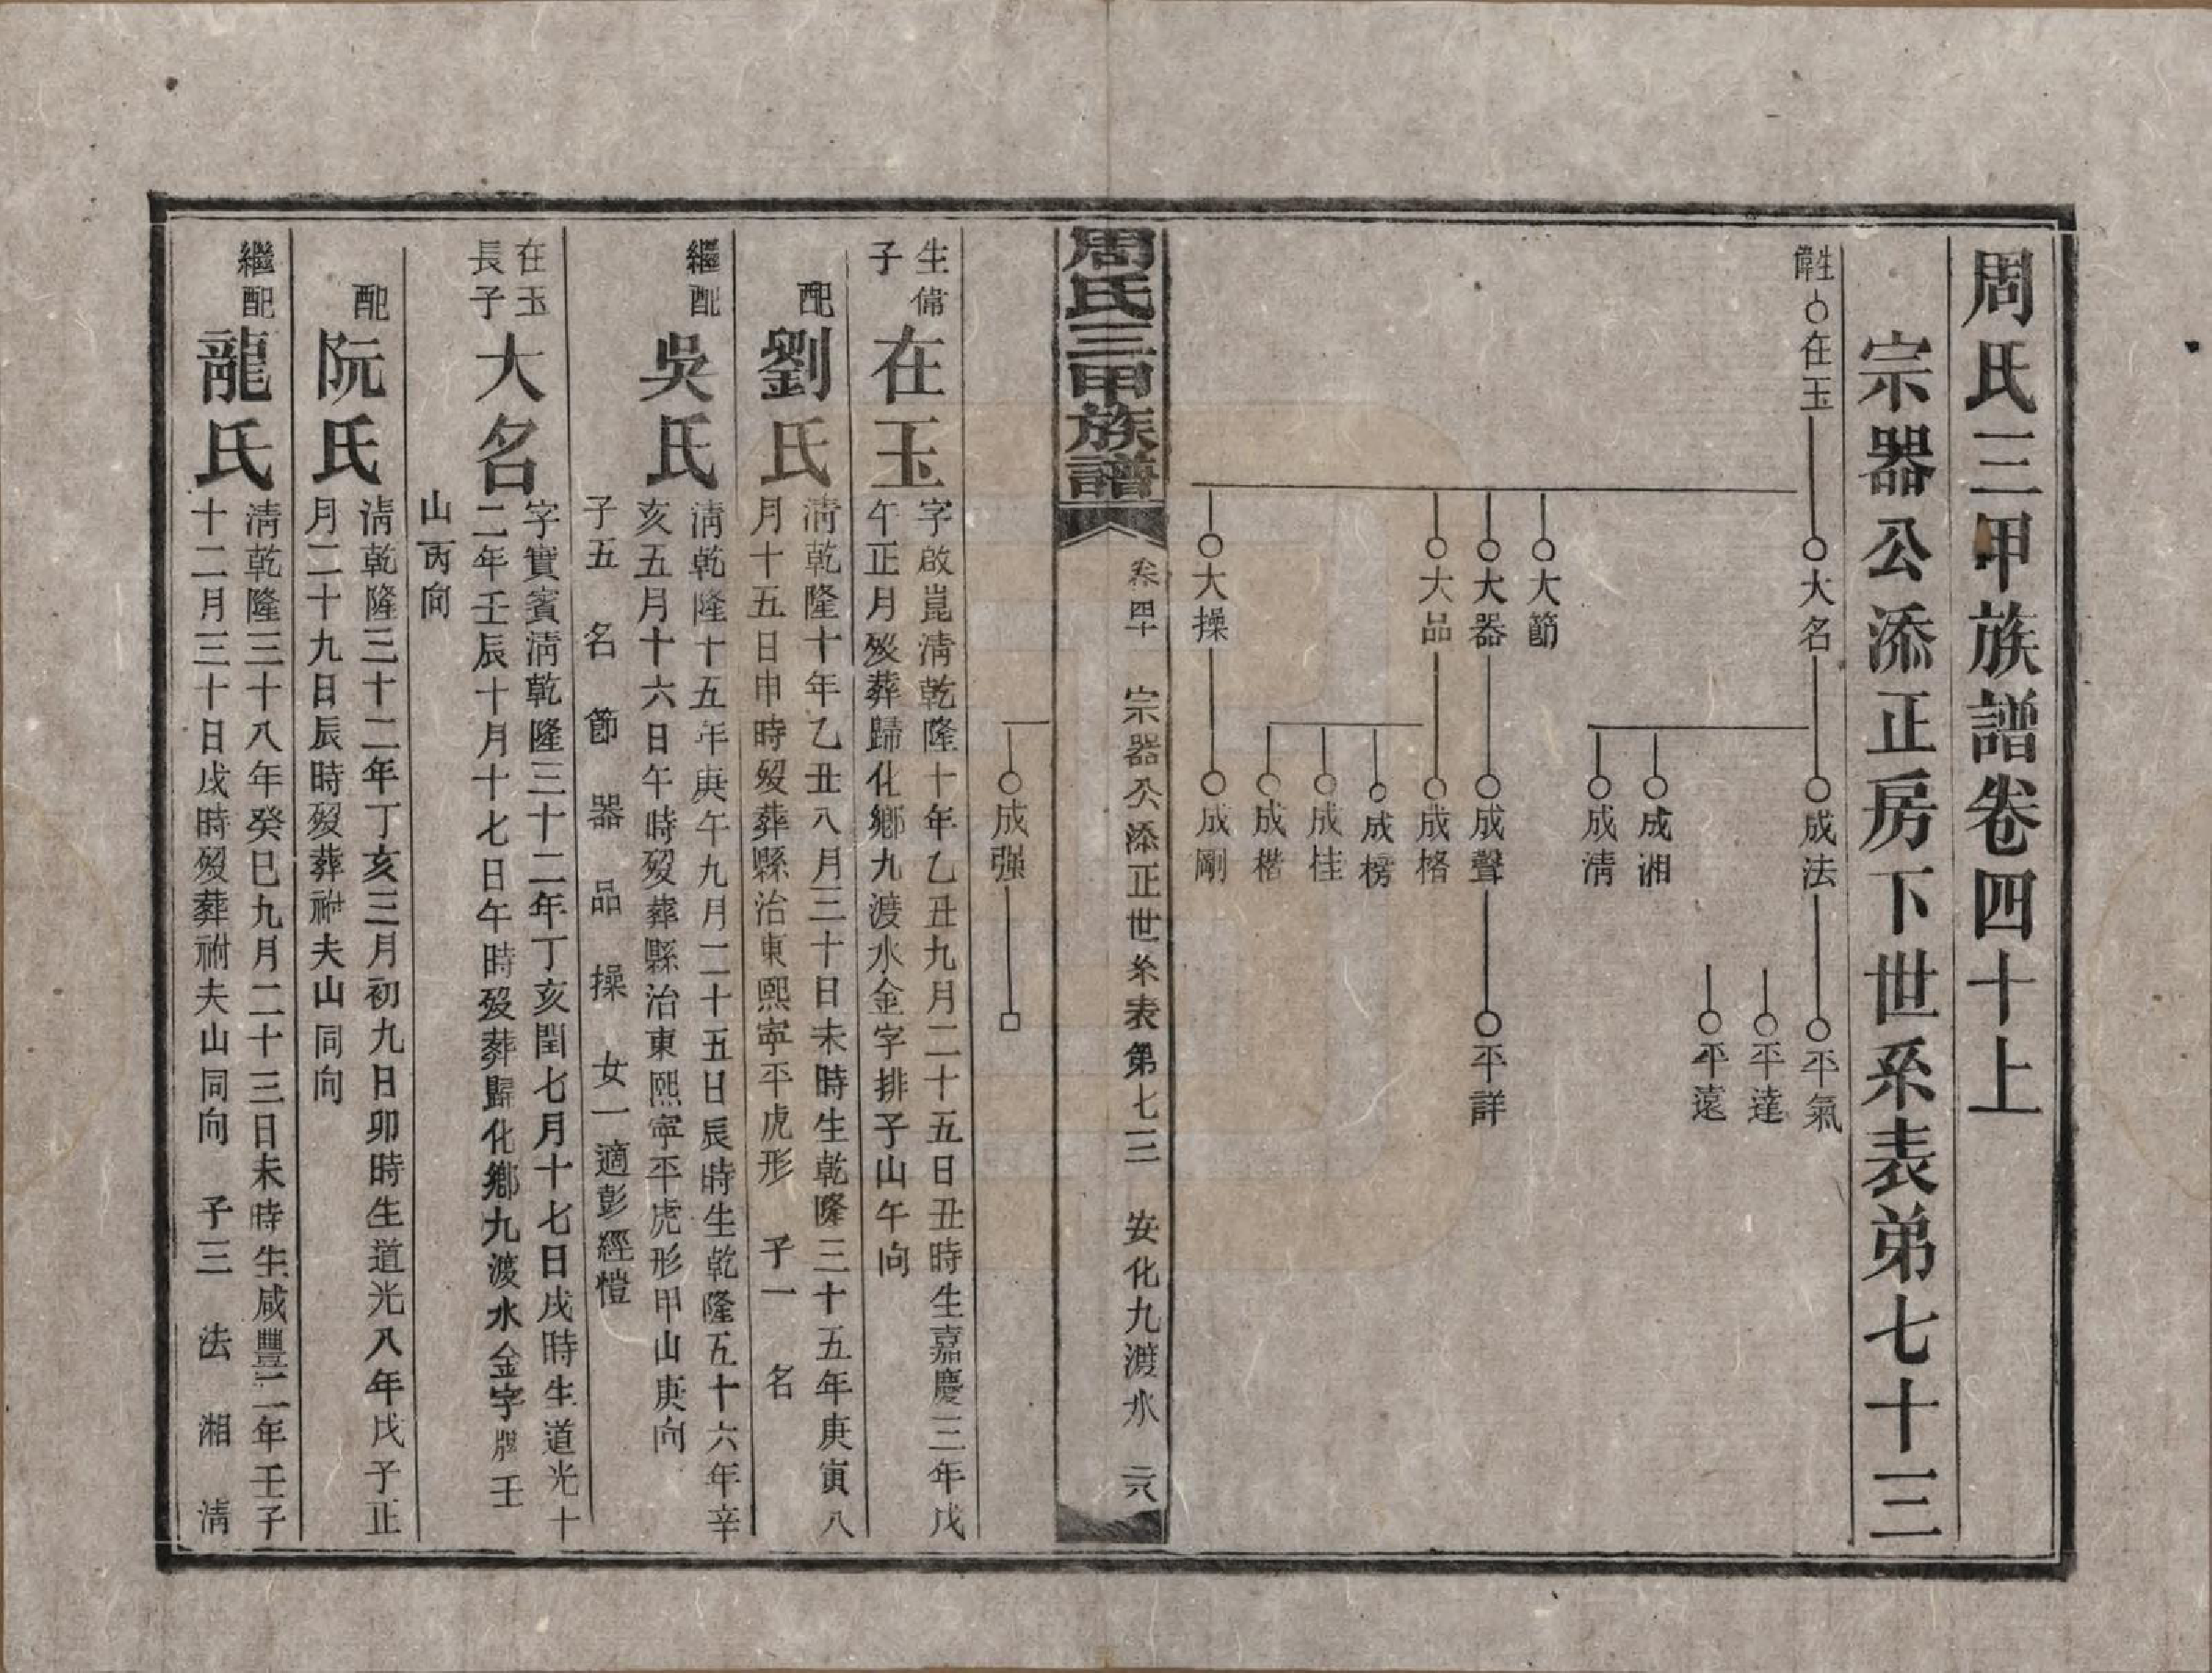 周氏三甲族譜卷四十上
宗器公添正房下世系表弟七十三
生偉 在玉
大名 成法 平氣
平達
平遠
成湘
成清
大節
大器 成聲 平詳
大品 成格
成榜
成桂
成楷
大操 成剛
周氏三甲族譜 卷四十 宗器公添正世系表第七三 安化九渡水 六
成強
生偉子 在玉 字啟崑清乾隆十年乙丑九月二十五日丑時生嘉慶三年戊
午正月歿葬歸化鄉九渡水金字排子山午向
配 劉氏 清乾隆十年乙丑八月三十日未時生乾隆三十五年庚寅八
月十五日申時歿葬縣治東熙寧平虎形 子一 名
繼配 吳氏 清乾隆十五年庚午九月二十五日辰時生乾隆五十六年辛
亥五月十六日午時歿葬縣治東熙寧平虎形甲山庚向
子五 名 節 器 品 操 女一適彭經愷
在玉長子 大名 字實賓清乾隆三十二年丁亥閏七月十七日戌時生道光十
二年壬辰十月十七日午時歿葬歸化鄉九渡水金字牌壬
山丙向
配 阮氏 清乾隆三十二年丁亥三月初九日卯時生道光八年戊子正
月二十九日辰時歿葬祔夫山同向
繼配 龍氏 清乾隆三十八年癸巳九月二十三日未時生咸豐二年壬子
十二月三十日戌時歿葬祔夫山同向 子三 法 湘 清